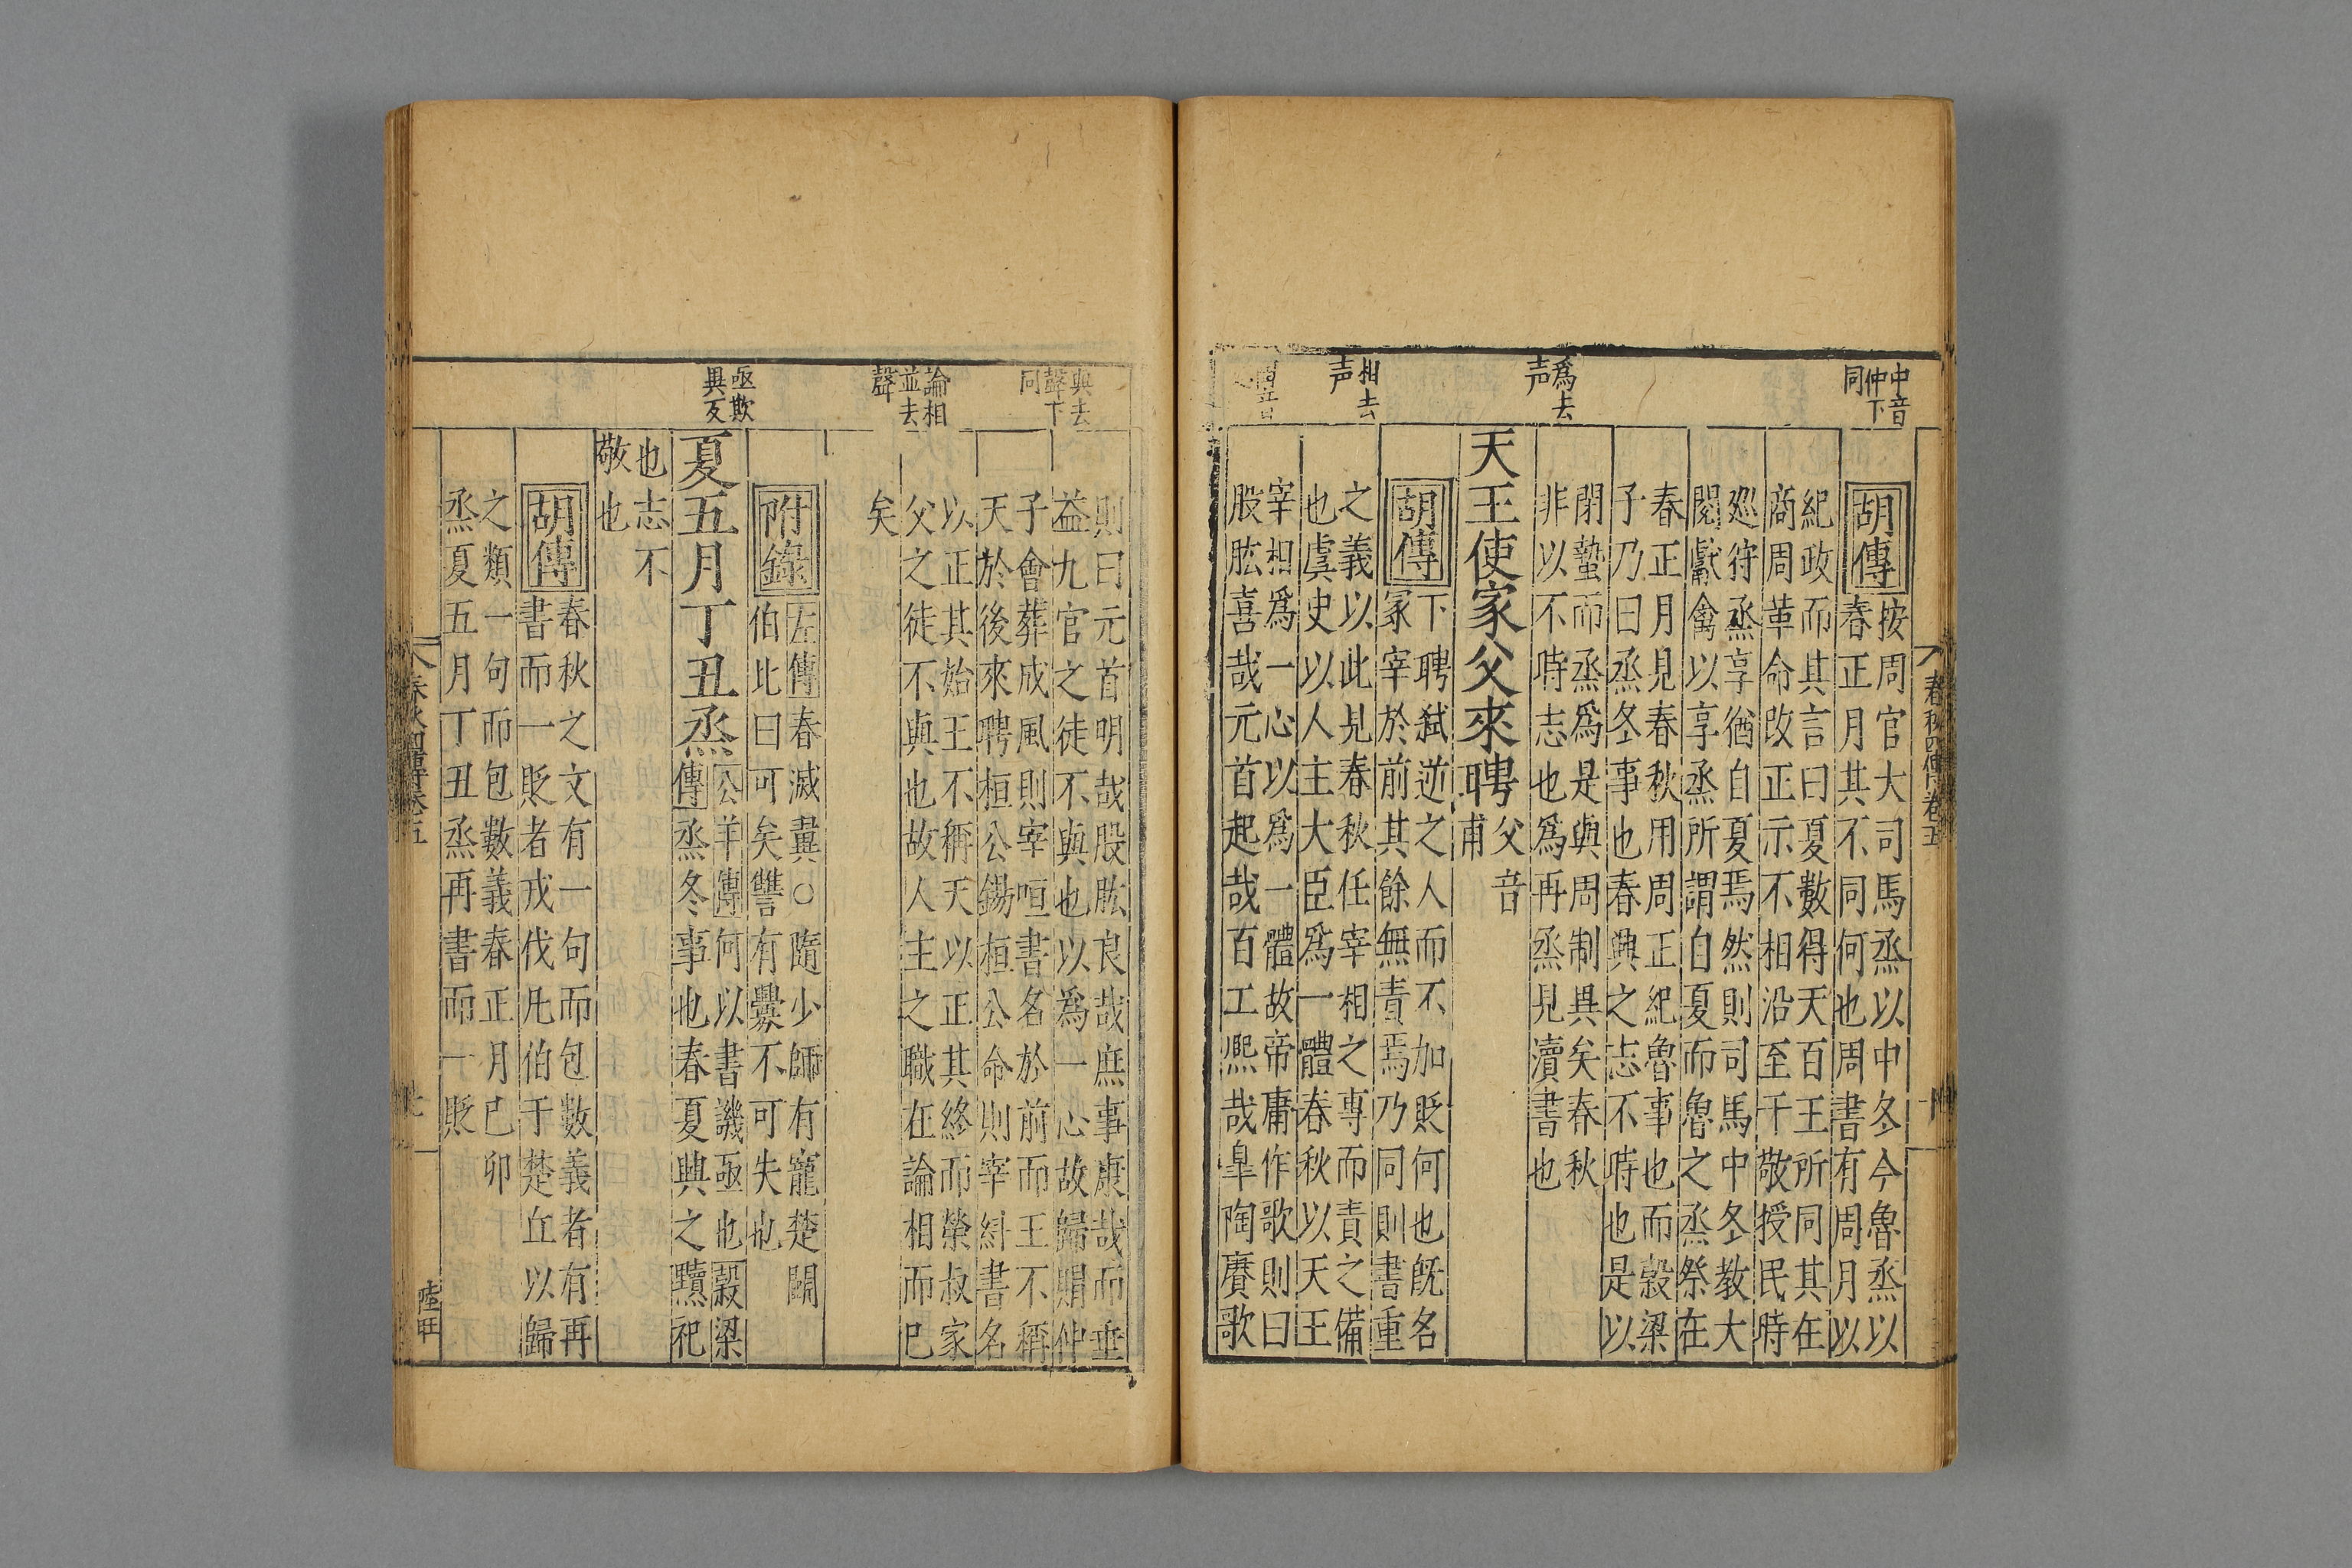 中音
仲下
同
爲去
声
相去
声
春秋四傳卷五
胡傳
按周官大司馬烝以中冬今魯烝以
春正月其不同何也周書有周月以
紀政而其言曰夏數得天百王所同其在
商周革命改正示不相沿至于敬授民時
廵狩烝享猶自夏焉然則司馬中冬教大
閱獻禽以享烝所謂自夏而魯之烝祭在
春正月見春秋用周正紀魯事也而穀梁
子乃曰烝冬事也春興之志不時也是以
閉蟄而烝爲是與周制異矣春秋
非以不時志也爲再烝見瀆書也
天王使家父來聘
父音
甫
胡傳
下聘弑逆之人而不加貶何也旣名
冢宰於前其餘無責焉乃同則書重
之義以此見春秋任宰相之專而責之備
也虞史以人主大臣爲一體春秋以天王
宰相爲一心以爲一體故帝庸作歌則曰
股肱喜哉元首起哉百工熈哉臯陶賡歌
與去
聲下
同
論相
並去
聲
亟欺
異反
則曰元首明哉股肱良哉庶事康哉而垂
益九官之徒不與也以爲一心故歸賵仲
子會葬成風則宰咺書名於前而王不稱
天於後來聘桓公錫桓公命則宰糾書名
以正其始王不稱天以正其終而榮叔家
父之徒不與也故人主之職在論相而已
矣
附錄
左傳春滅翼○隨少師有寵楚鬬
伯比曰可矣讐有釁不可失也
夏五月丁丑烝
公羊傳何以書譏亟也穀梁
傳烝冬事也春夏興之黷祀
也志不
敬也
胡傳
春秋之文有一句而包數義者有再
書而一貶者戎伐凡伯于楚丘以歸
之類一句而包數義春正月己卯
烝夏五月丁丑烝再書而一貶
春秋四傳卷五
七
陸旺